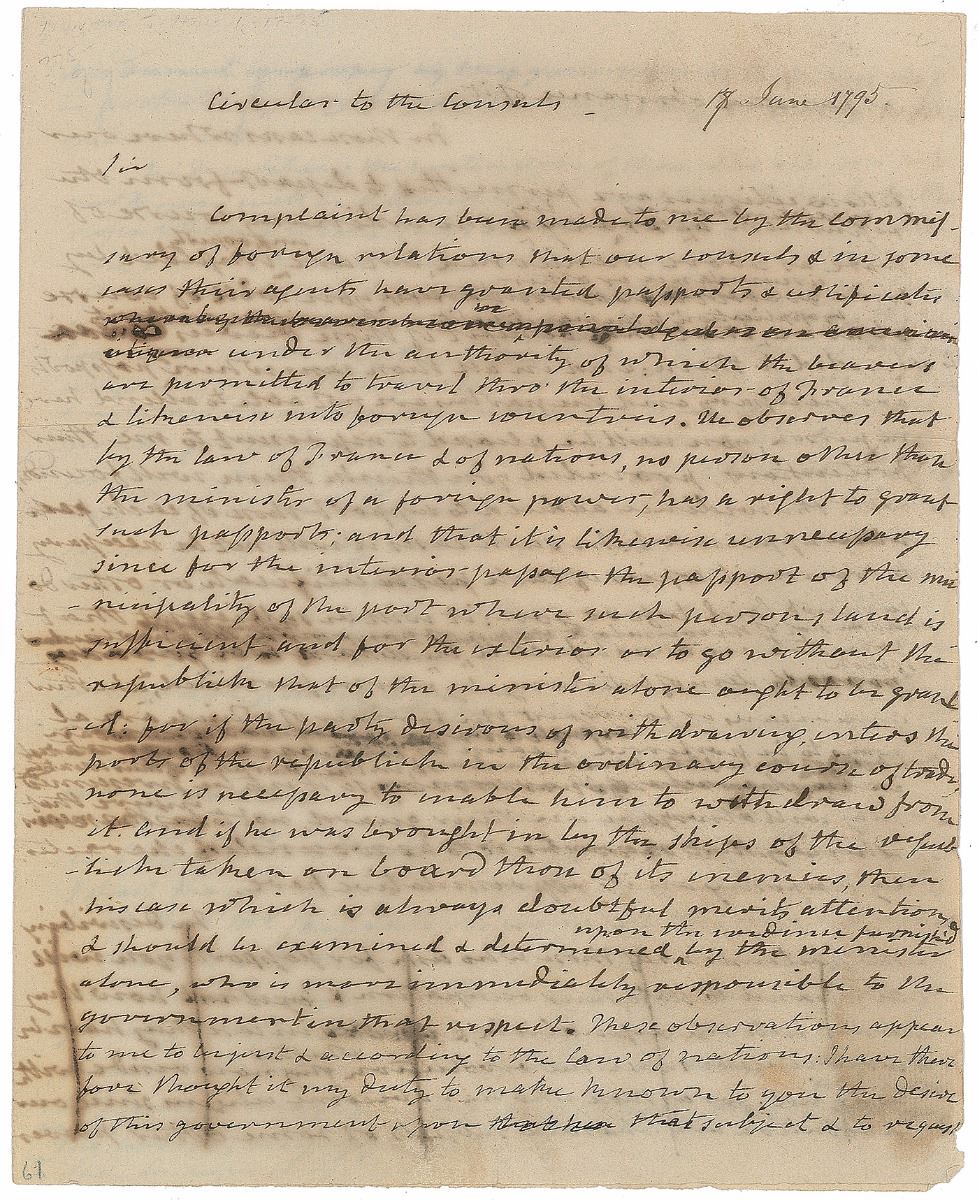 Circular to the Consuls 17 June 1795.
Sir
Complaint has been made to me by the commis-
sary of foreign relations that our consuls & in some
cases their agents have granted passports & certificates
under the authority of which the bearers
are permitted to travel thro' the interior of France
& likewise into foreign countries. He observes that
by the law of France & of nations, no person other than
the minister of a foreign power, has a right to grant
such passports; and that it is likewise unnecessary
since for the interior passage the passport of the mu
-nicipality of the port where such persons land is
sufficient, and for the exterior or to go without the
republick that of the minister alone ought to be grant
-ed: for if the party desirous of withdrawing, enters the
ports of the republick in the ordinary course of trade,
none is necessary to enable him to withdraw from
it. and if he was brought in by the ships of the repub
-lick taken on board those of its enemies, then
his case which is always doubtful merits attention,
upon the evidence furnished
& should be examined & determined by the minister
alone, who is more immediately responsible to the
government in that respect. These observations appear
to me to be just & according to the law of nations: I have there
fore thought it my duty to make known to you the desire
of this government upon that subject & to request
61